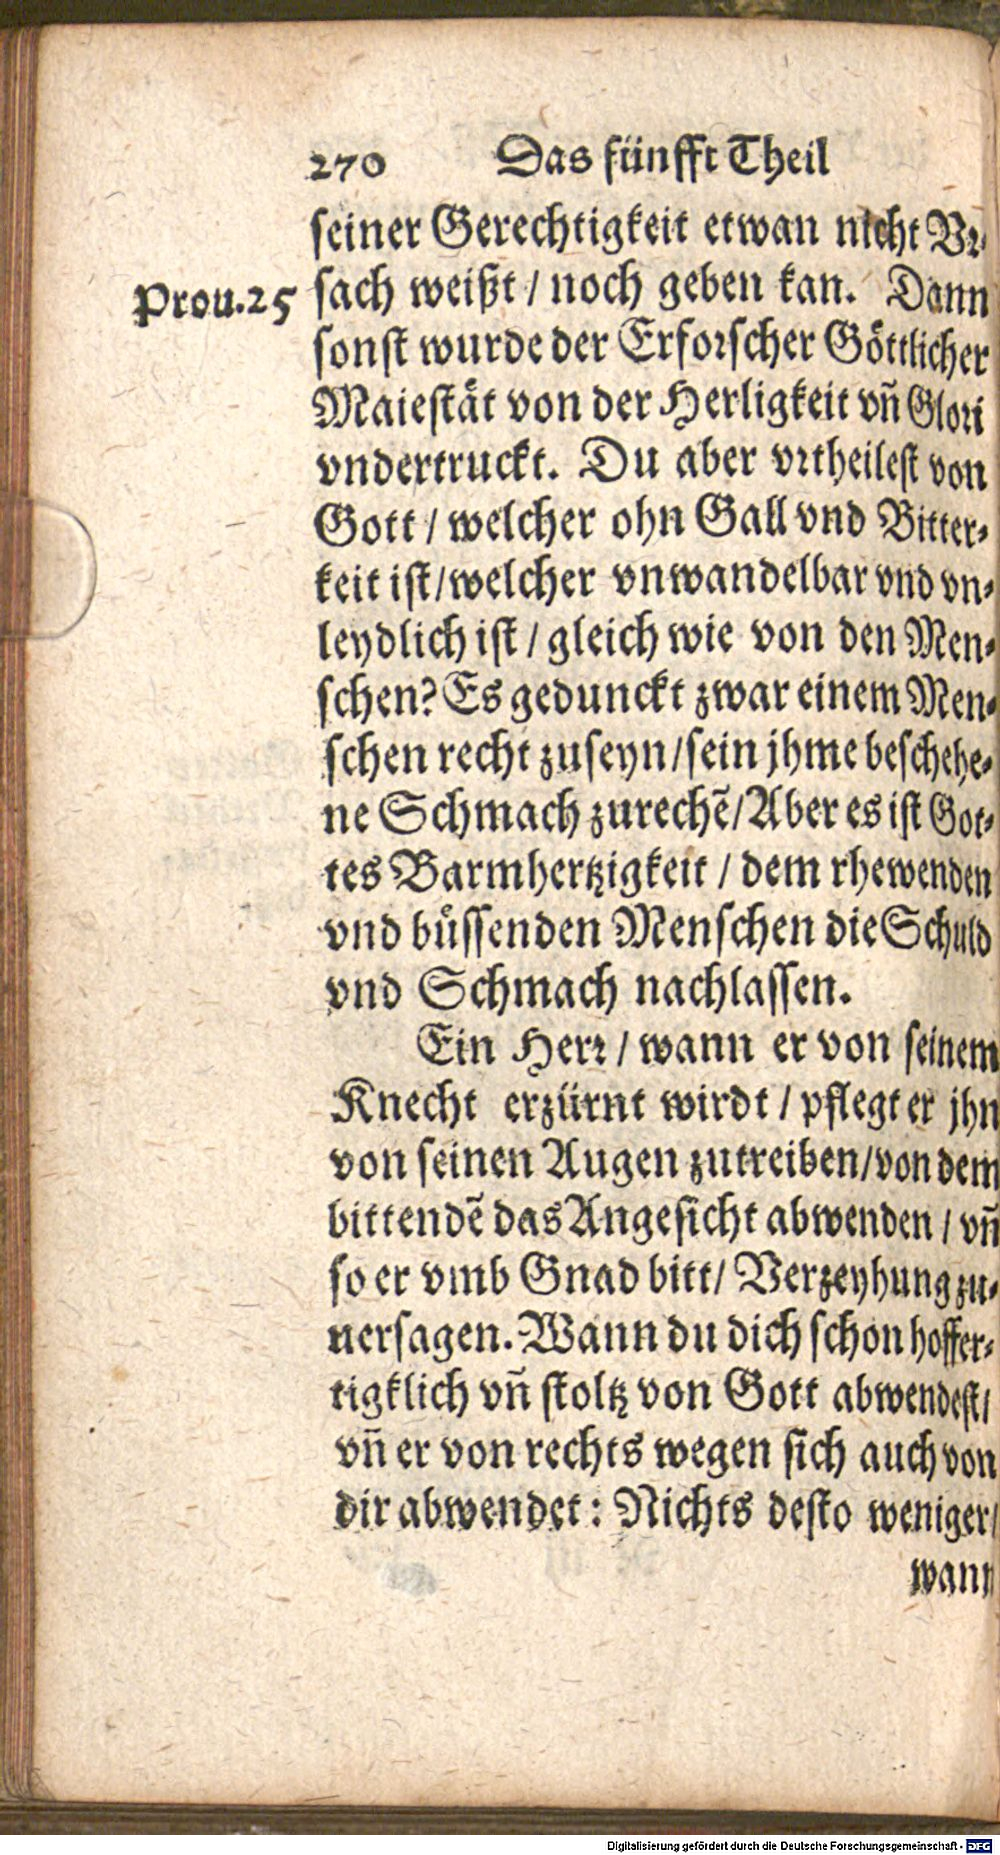 270 Das fünfft Theil
seiner Gerechtigkeit etwan nicht Vr-
Prou.25 sach weißt / noch geben kan. Dann
sonst wurde der Erforscher Göttlicher
Maiestät von der Herligkeit vñ Glori
vndertruckt. Du aber vrtheilest von
Gott / welcher ohn Gall vnd Bitter-
keit ist / welcher vnwandelbar vnd vn-
leydlich ist / gleich wie von den Men-
schen? Es gedunckt zwar einem Men-
schen recht zuseyn / sein jhme beschehe-
ne Schmach zurechẽ / Aber es ist Got-
tes Barmhertzigkeit / dem rhewenden
vnd büssenden Menschen die Schuld
vnd Schmach nachlassen.
Ein Herr / wann er von seinem
Knecht erzürnt wirdt / pflegt er jhn
von seinen Augen zutreiben / von dem
bittendẽ das Angesicht abwenden / vñ
so er vmb Gnad bitt / Verzeyhung zu-
uersagen. Wann du dich schon hoffer-
tigklich vñ stoltz von Gott abwendest /
vñ er von rechts wegen sich auch von
dir abwendet : Nichts desto weniger /
wann
Digitalisierung gefördert durch die Deutsche Forschungsgemeinschaft - DFG